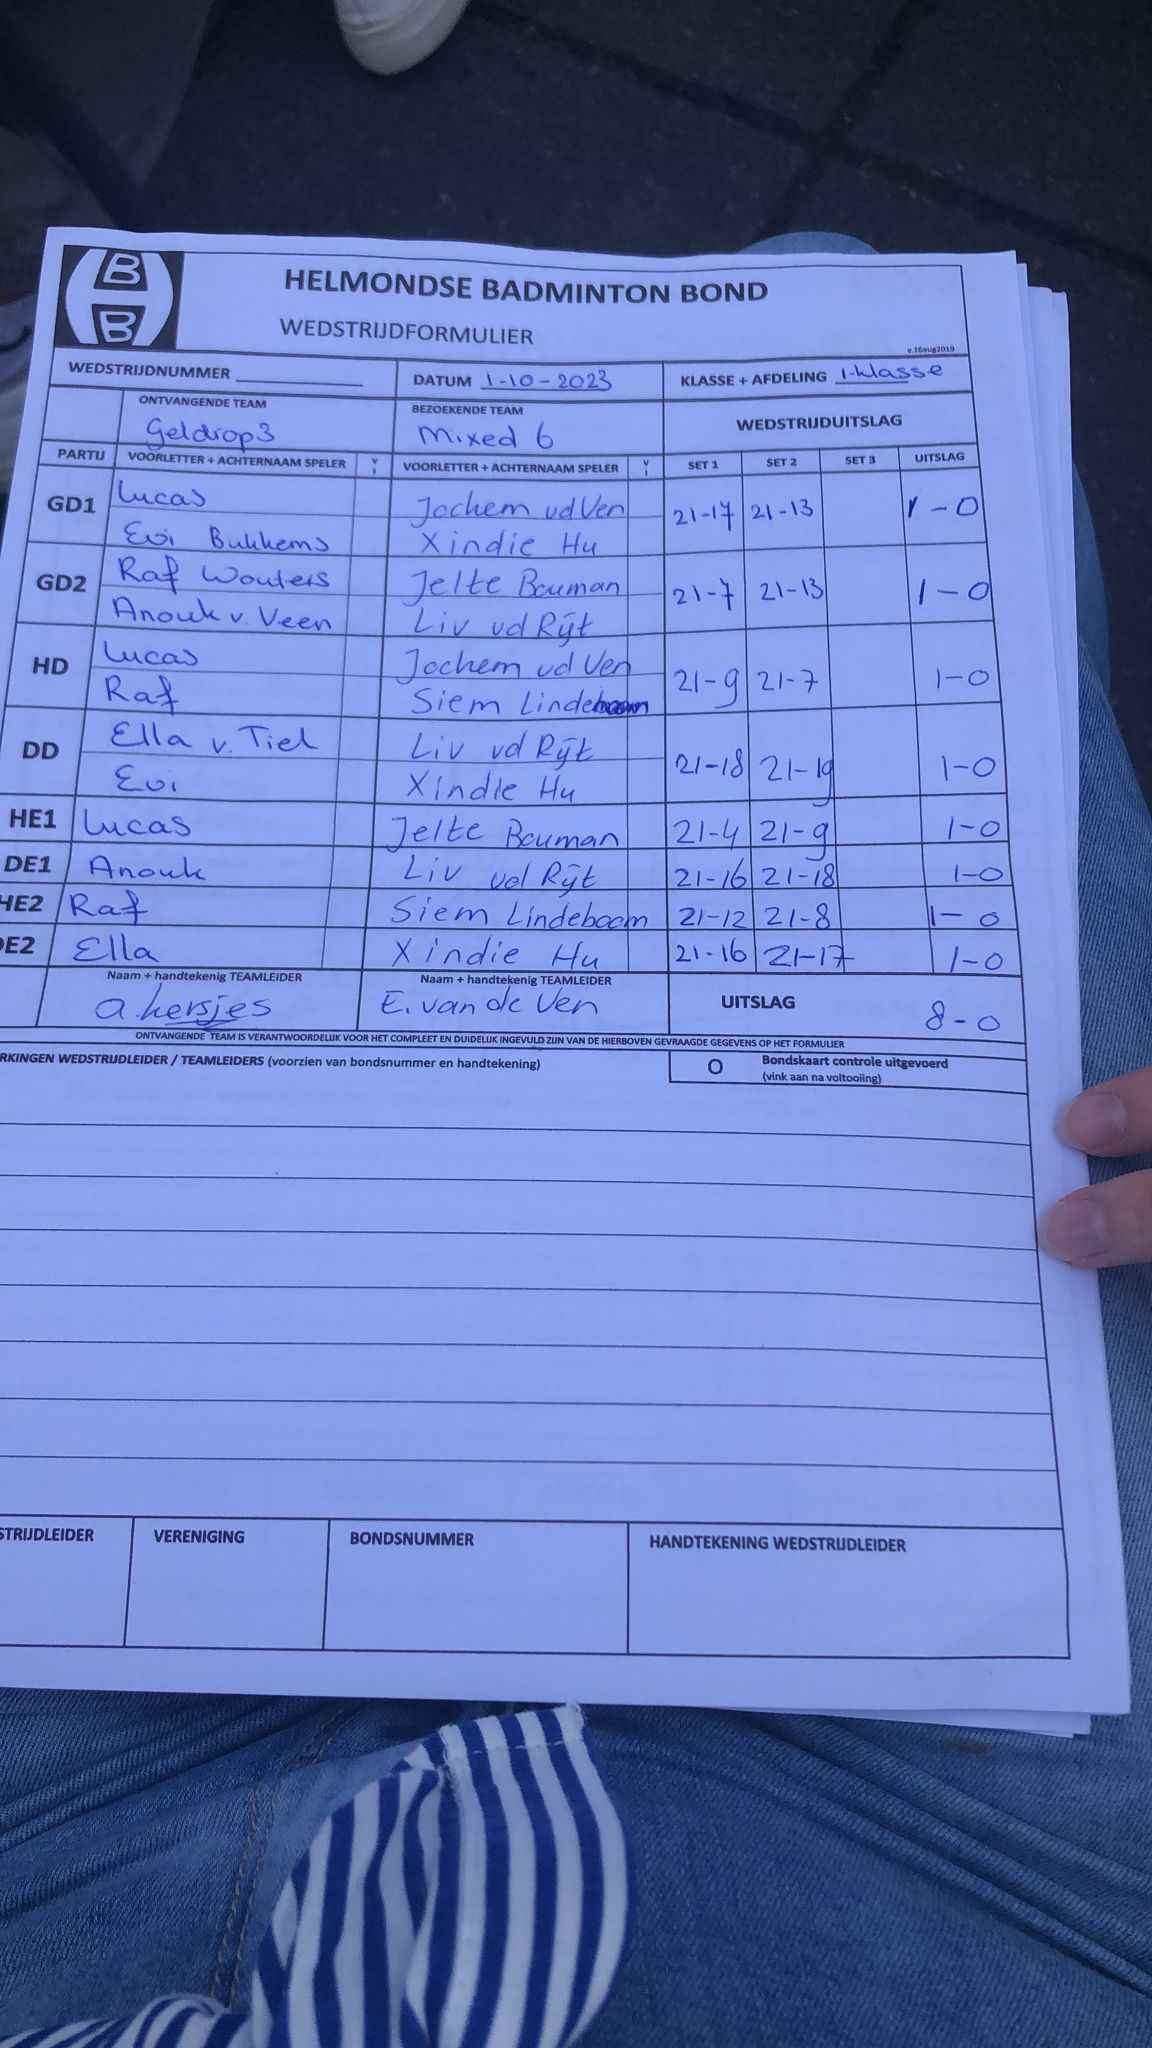 B
B
HELMONDSE BADMINTON BOND
WEDSTRIJDFORMULIER
v.16aug2019
WEDSTRIJDNUMMER DATUM 1-10-2023 KLASSE + AFDELING 1-klasse
ONTVANGENDE TEAM BEZOEKENDE TEAM WEDSTRIJDUITSLAG
Geldrop3 Mixed 6
PARTIJ VOORLETTER + ACHTERNAAM SPELER V I VOORLETTER + ACHTERNAAM SPELER V I SET 1 SET 2 SET 3 UITSLAG
GD1 Lucas Jochem vd Ven 21-17 21-13 1-0
Evi Bukkems Xindie Hu
GD2 Raf Wouters Jelte Bouman 21-7 21-13 1-0
Anouk v. Veen Liv vd Rijt
HD Lucas Jochem vd Ven 21-9 21-7 1-0
Raf Siem Lindeboom
DD Ella v. Tiel Liv vd Rijt 21-18 21-19 1-0
Evi Xindie Hu
HE1 Lucas Jelte Bouman 21-4 21-9 1-0
DE1 Anouk Liv vd Rijt 21-16 21-18 1-0
HE2 Raf Siem Lindeboom 21-12 21-8 1-0
DE2 Ella Xindie Hu 21-16 21-17 1-0
Naam + handtekenig TEAMLEIDER Naam + handtekenig TEAMLEIDER UITSLAG 8-0
a.hersjes E. van de Ven
ONTVANGENDE TEAM IS VERANTWOORDELIJK VOOR HET COMPLEET EN DUIDELIJK INGEVULD ZIJN VAN DE HIERBOVEN GEVRAAGDE GEGEVENS OP HET FORMULIER
RKINGEN WEDSTRIJDLEIDER / TEAMLEIDERS (voorzien van bondsnummer en handtekening) O Bondskaart controle uitgevoerd
(vink aan na voltooiing)
STRIJDLEIDER VERENIGING BONDSNUMMER HANDTEKENING WEDSTRIJDLEIDER